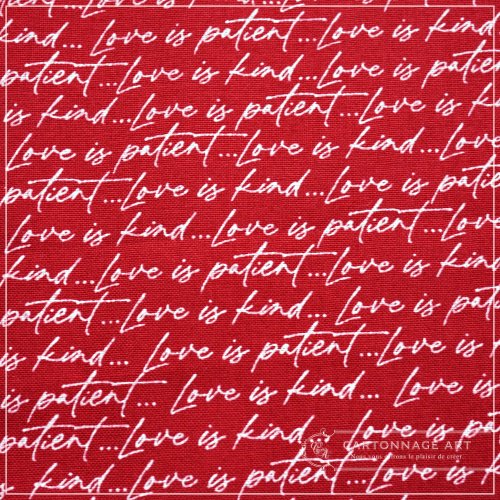 kind... Love is patient...Love is
patient...Love is kind...Love is pa
is kind...Love is patient...Love is
Love is patient...Love is kind...Love
patient...Love is kind...Love is patie
Love is kind...Love is patient...Love
kind...Love is patient...Love is kind
patient...Love is kind...Love is pati
is kind... Love is patient...Love is k
is patient... Love is kind... Love is
patient...Love is kind... Love is pa
Love is patient...Love is kind...
CARTONNAGE ART
Nous vous offrons le plaisir de créer